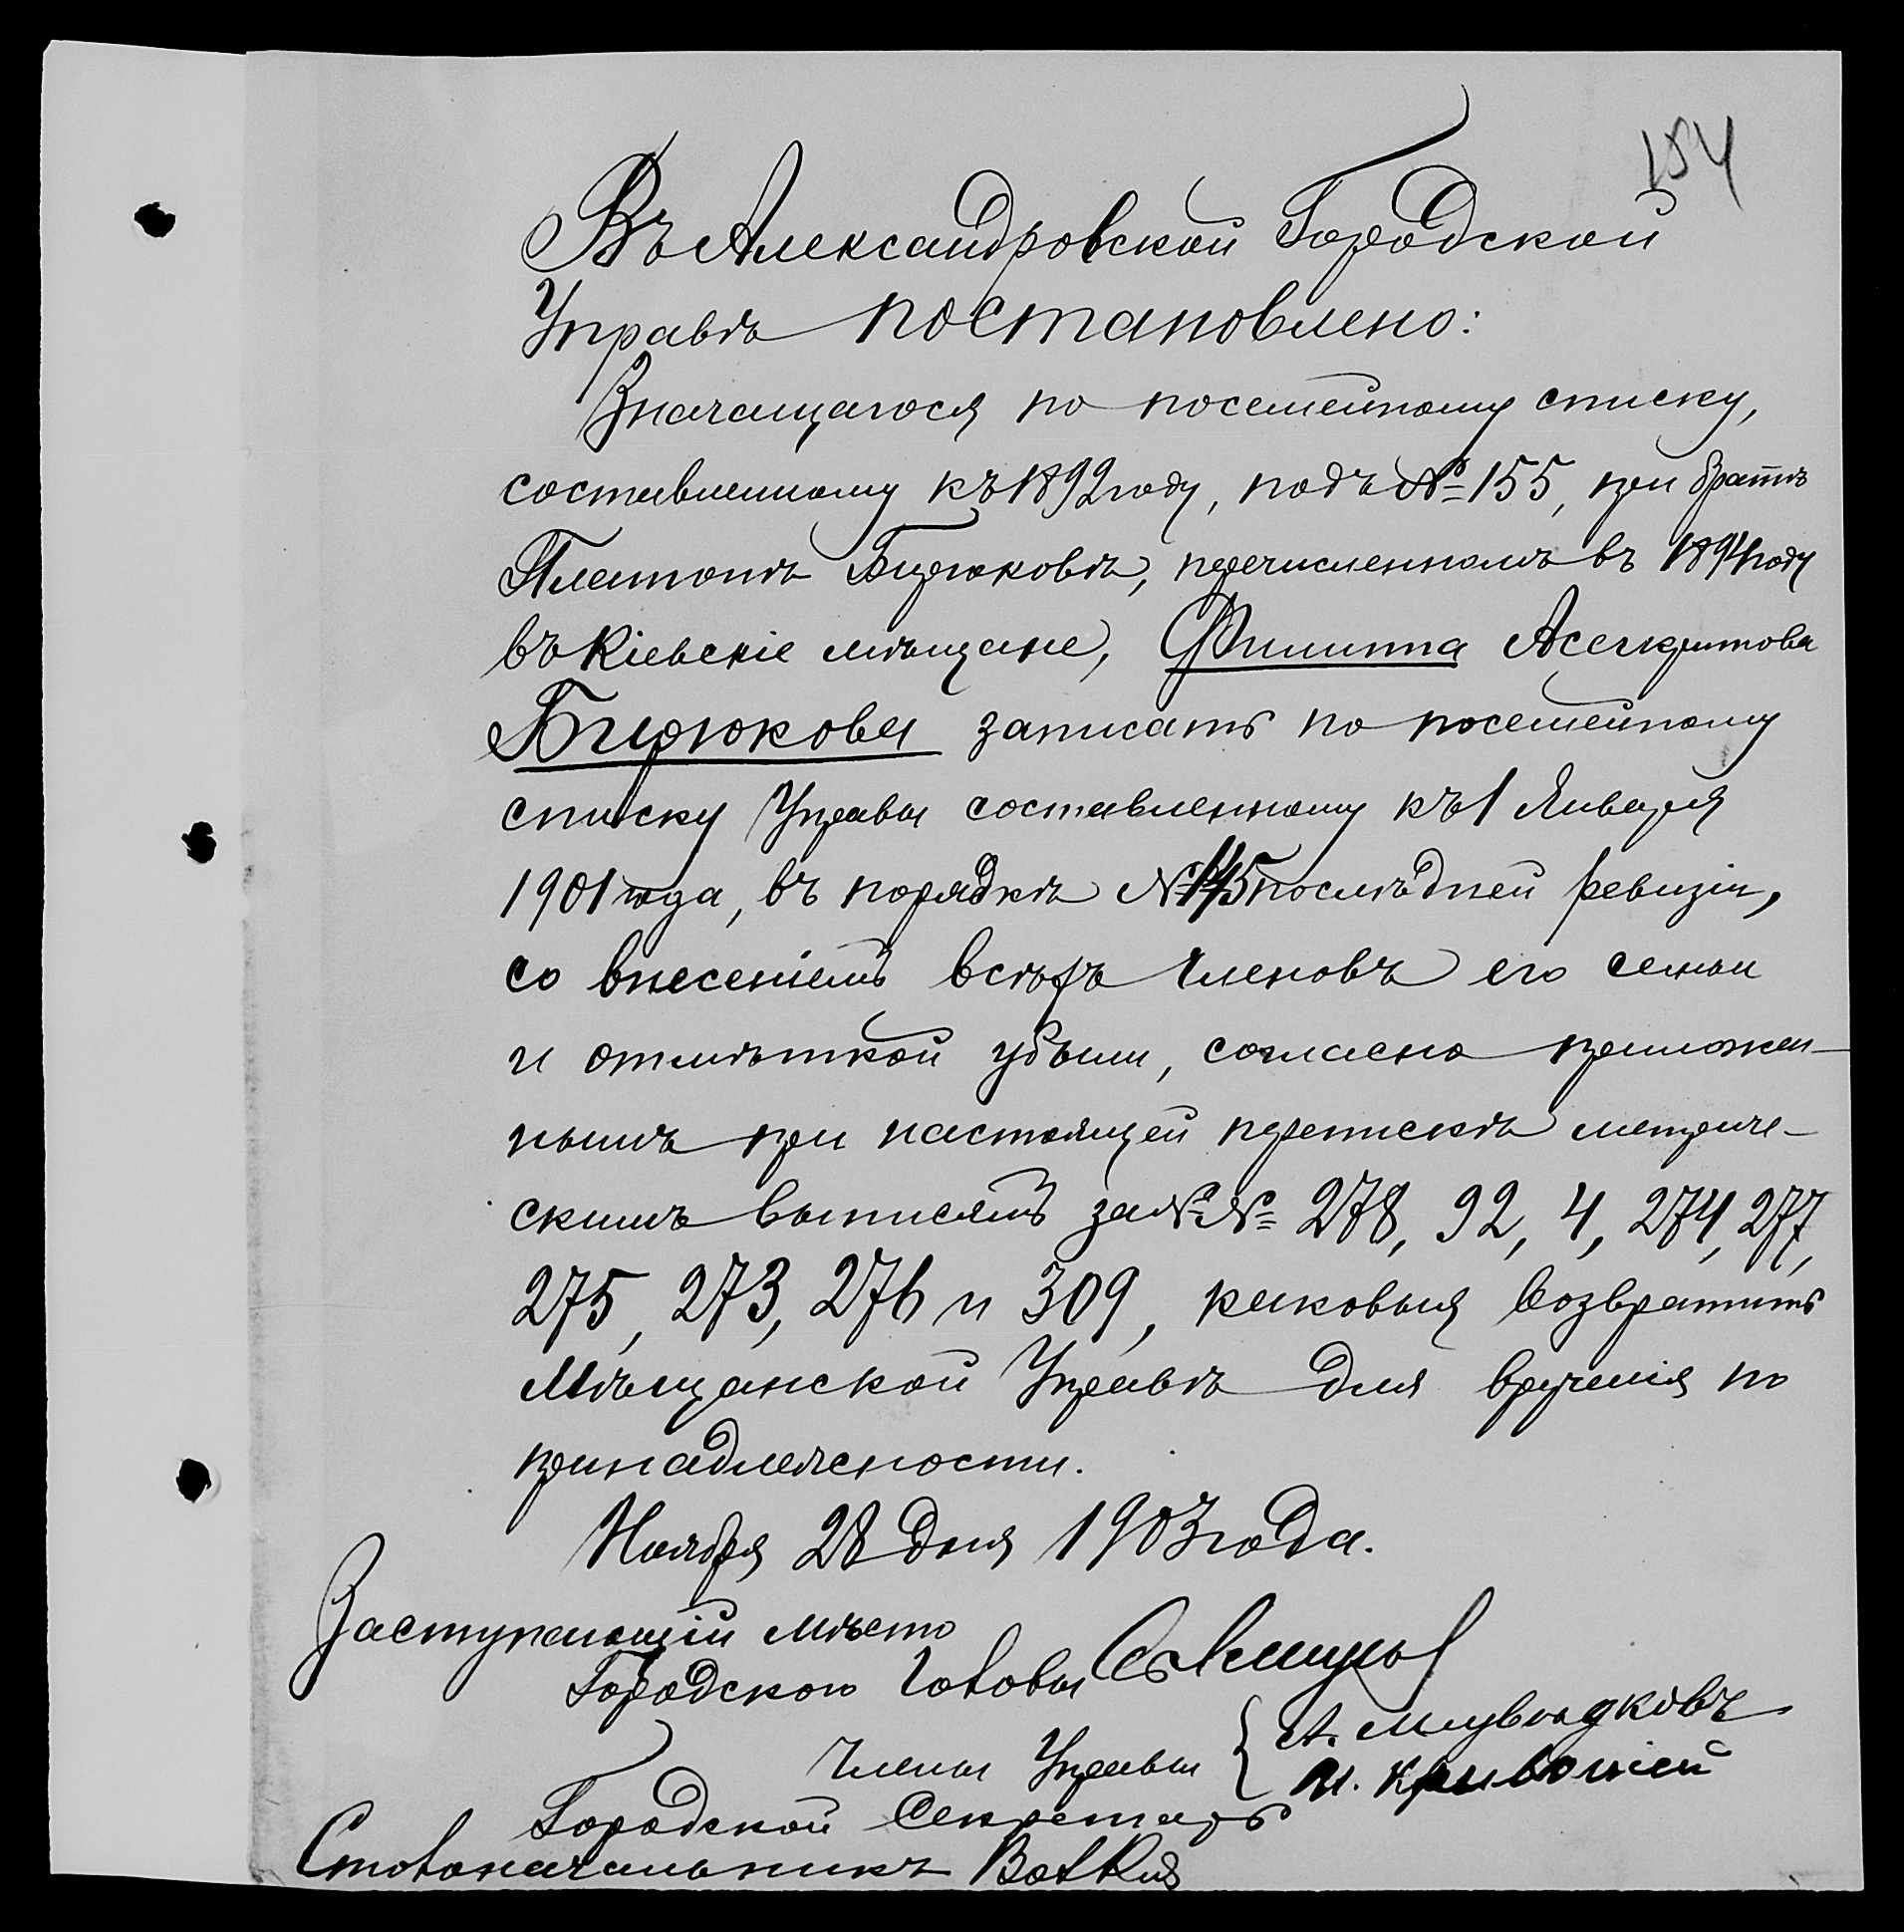 154
Въ Александровской Городской
Управѣ постановлено:
Значащагося по посемейному списку,
составленному къ 1892 году, подъ № 155, при братѣ
Платонѣ Бирюковѣ, перечисленномъ въ 1894 году
въ Кіевскіе мѣщане, Филиппа Асигкритова
Бирюкова записать по посемейному
списку Управы составленному къ 1 Января
1901 года, въ порядкѣ № 145 послѣдней ревизіи,
со внесеніемъ всѣхъ членовъ его семьи
и отмѣткой убыли, согласно приложен-
нымъ при настоящей перепискѣ метриче-
скимъ выписямъ за №№ 278, 92, 4, 274, 277,
275, 273, 276 и 309, каковыя возвратить
Мѣщанской Управѣ для врученія по
принадлежности.
Ноября 28 дня 1903 года.
Заступающій мѣсто
Городского Головы
Члены Управы { А.
И. Кривошей
Городской Секретарь
Столоначальникъ